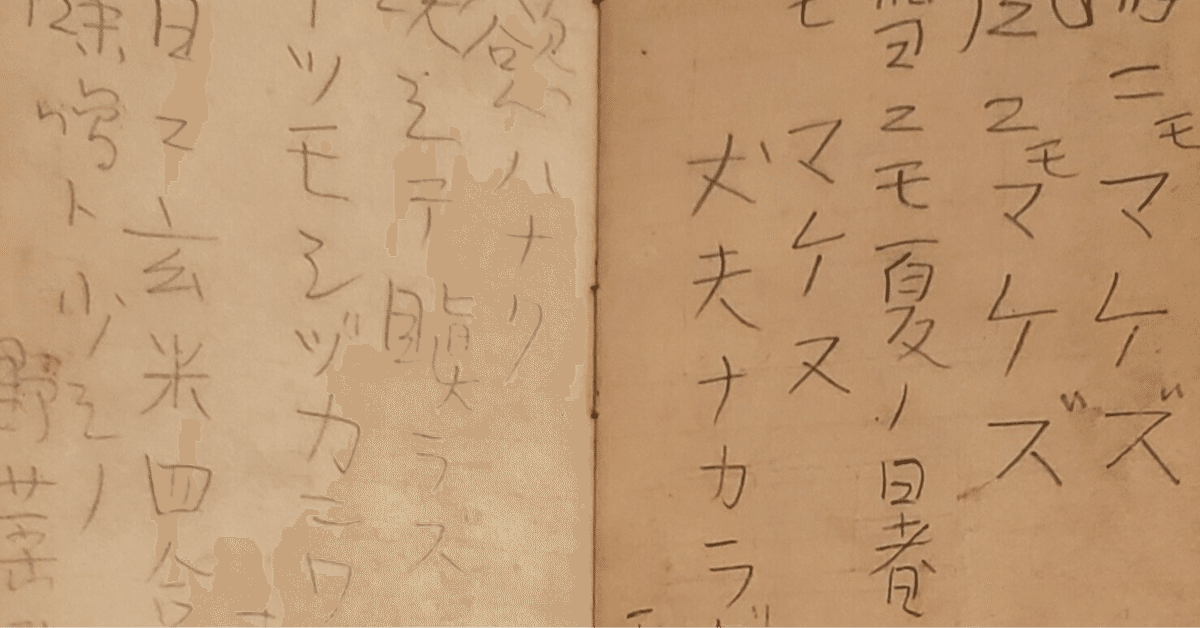 ニモマケズ
ニモマケズ
雪ニモ夏ノ暑
モマケヌ
丈夫ナカラ
慾ハナク
決シテ瞋ラズ
イツモシヅカニワ
日ニ玄米四合
味噌ト少シノ
野菜